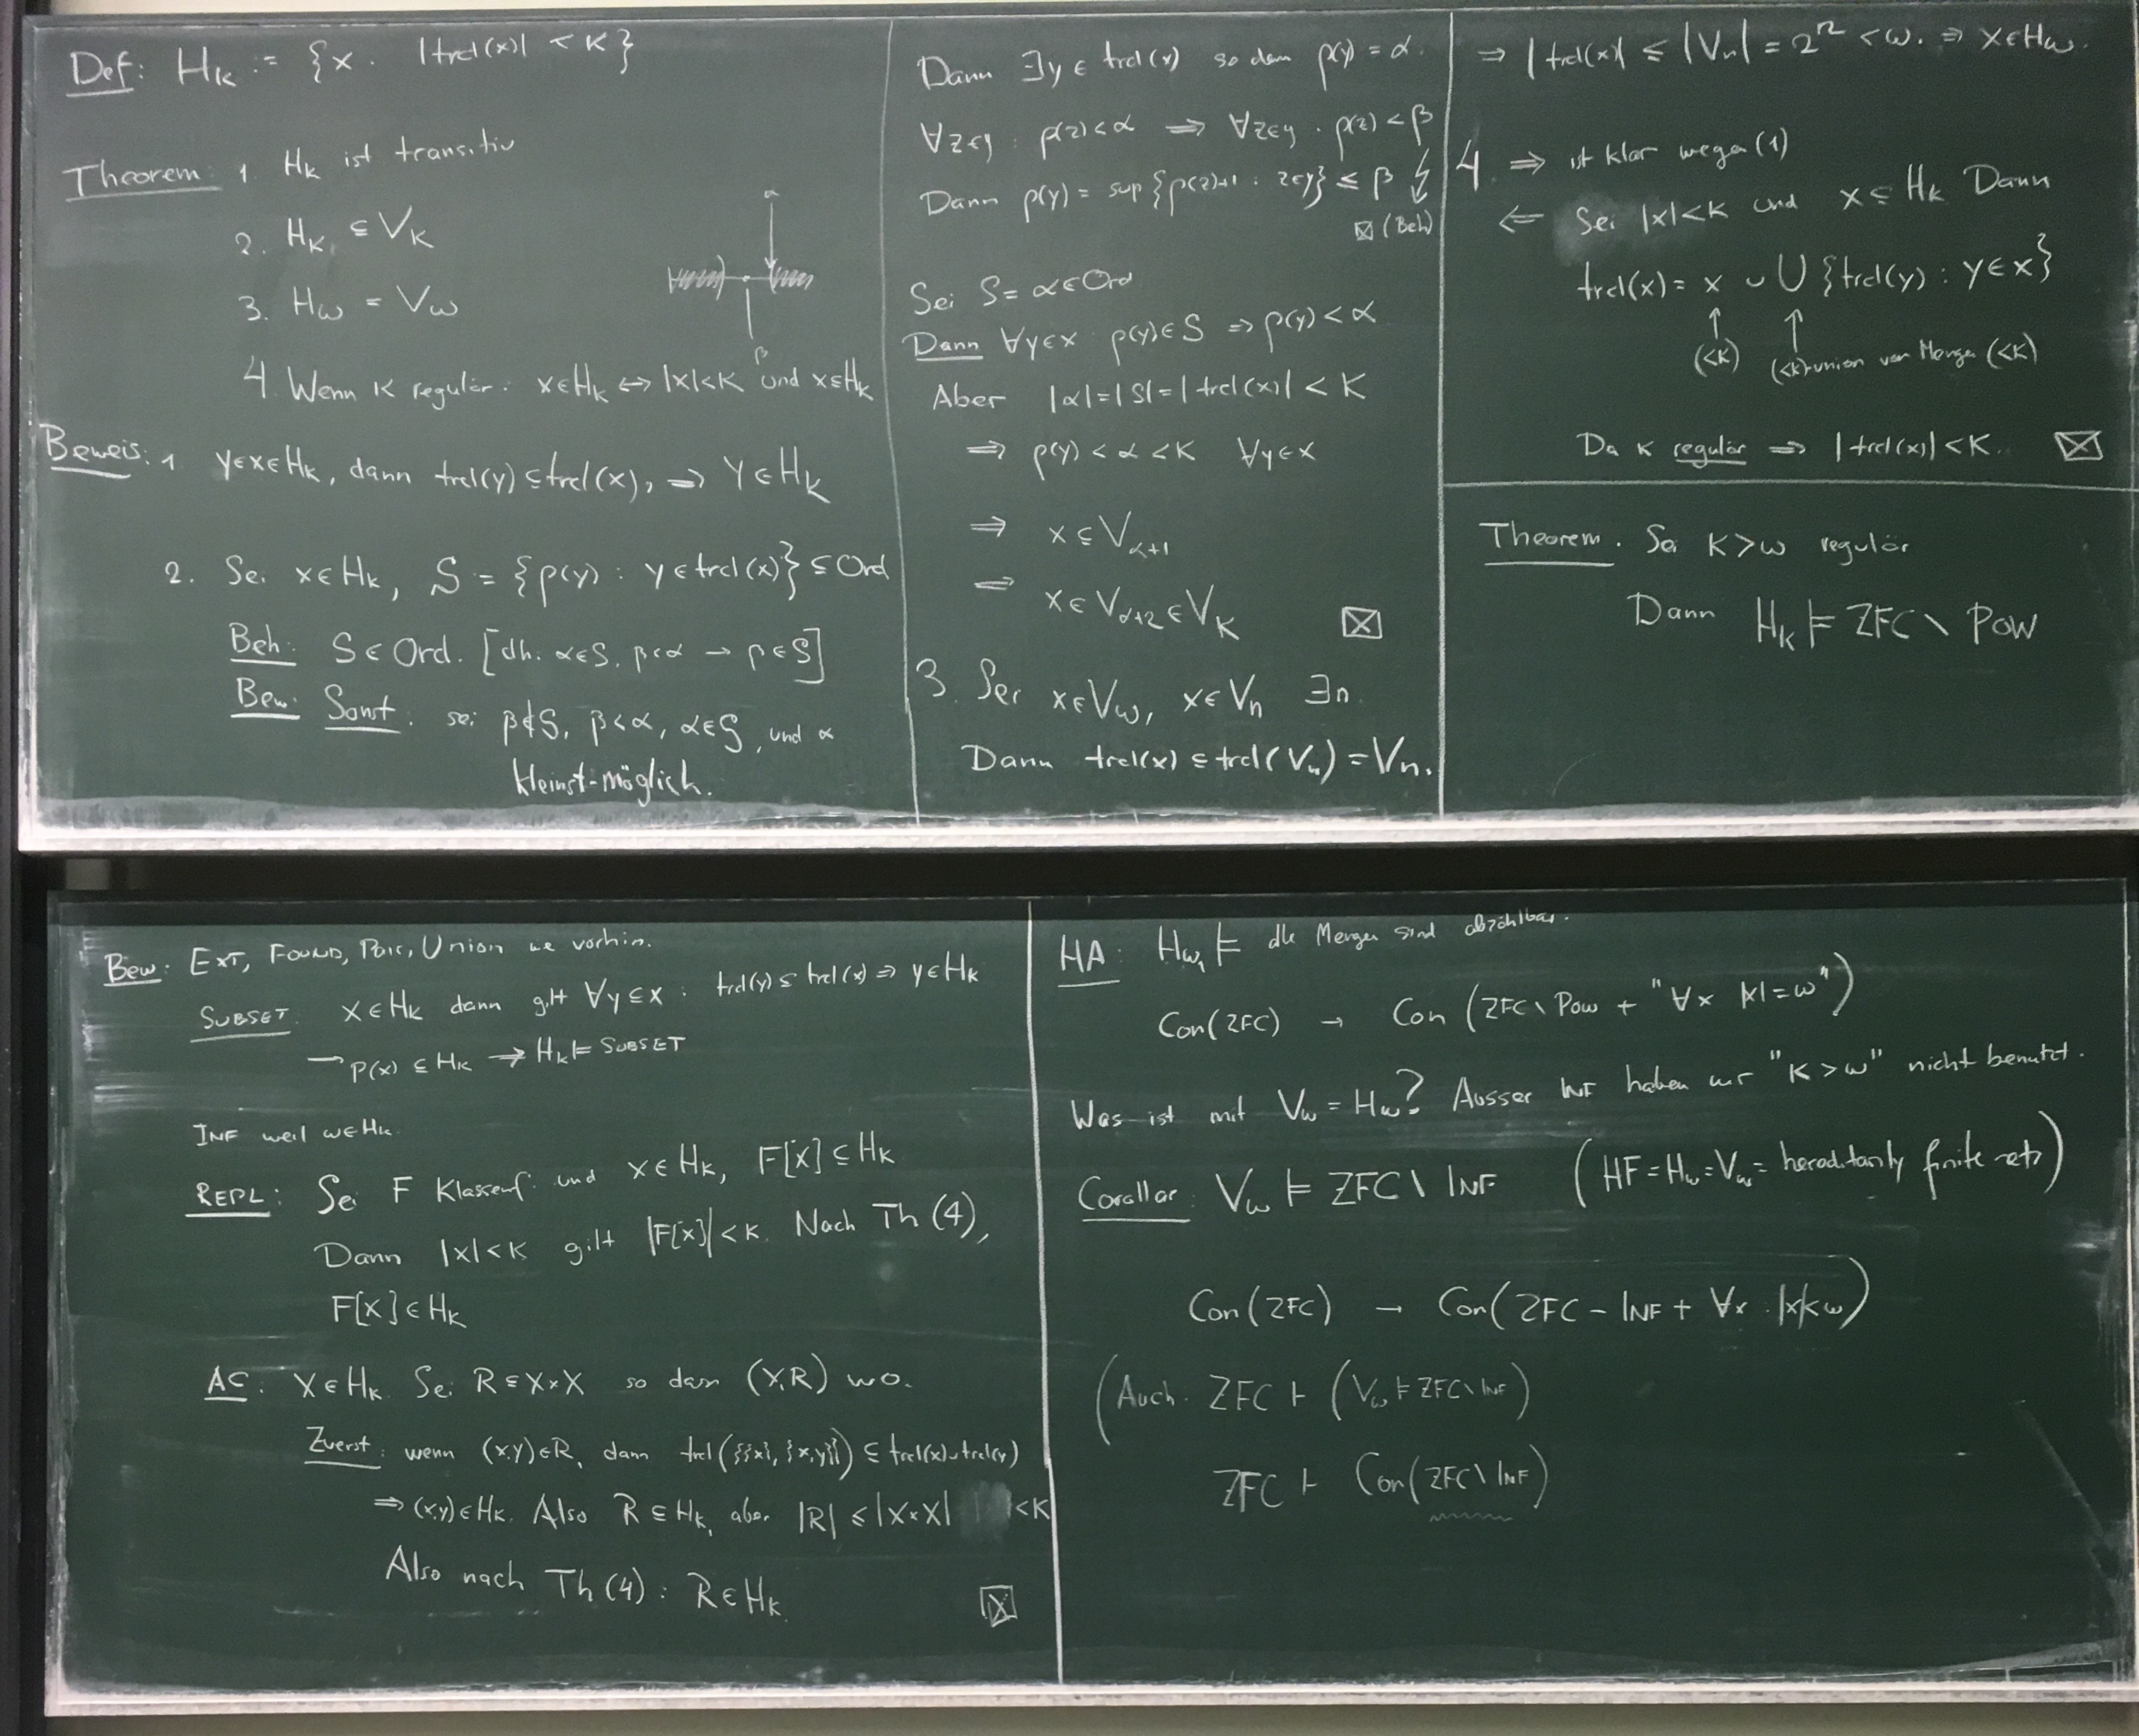 Def: H_κ := {x : |trcl(x)| < κ}
Theorem: 1. H_κ ist transitiv
2. H_κ ⊆ V_κ
3. H_ω = V_ω
α
β
4. Wenn κ regulär: x∈H_κ ↔ |x|<κ und x⊆H_κ
Beweis: 1 y∈x∈H_κ, dann trcl(y) ⊆ trcl(x), ⇒ y∈H_κ
2. Sei x∈H_κ, S = {ρ(y) : y∈trcl(x)} ⊆ Ord
Beh: S∈Ord. [dh. α∈S, β<α → β∈S]
Bew: Sonst: sei β∉S, β<α, α∈S, und α
kleinst-möglich.
Dann ∃y∈trcl(x) so dass ρ(y) = α.
∀z∈y : ρ(z)<α ⇒ ∀z∈y . ρ(z)<β
Dann ρ(y) = sup {ρ(z)+1 : z∈y} ≤ β ↯
⊠ (Beh)
Sei S = α∈Ord
Dann ∀y∈x ρ(y)∈S ⇒ ρ(y)<α
Aber |α|=|S|=|trcl(x)| < κ
⇒ ρ(y) < α < κ ∀y∈x
⇒ x ⊆ V_{α+1}
⇒ x∈V_{α+2} ∈ V_κ ⊠
3. Sei x∈V_ω, x∈V_n ∃n.
Dann trcl(x) ⊆ trcl(V_n) = V_n.
⇒ |trcl(x)| ≤ |V_n| = 2^n < ω. ⇒ x∈H_ω.
4. ⇒ ist klar wegen (1)
⇐ Sei |x|<κ und x⊆H_κ Dann
trcl(x) = x ∪ ⋃ {trcl(y) : y∈x}
↑ ↑
(<κ) (<κ)-union von Mengen (<κ)
Da κ regulär ⇒ |trcl(x)| < κ. ⊠
Theorem. Sei κ>ω regulär
Dann H_κ ⊨ ZFC \ POW
Bew: EXT, FOUND, PAIR, UNION wie vorhin.
SUBSET: x∈H_κ dann gilt ∀y⊆x : trcl(y) ⊆ trcl(x) ⇒ y∈H_κ
→ P(x) ⊆ H_κ → H_κ ⊨ SUBSET
INF weil ω∈H_κ
REPL: Sei F Klassenf. und x∈H_κ, F[x] ⊆ H_κ
Dann |x|<κ gilt |F[x]|<κ. Nach Th (4),
F[x]∈H_κ
AC: X∈H_κ. Sei R⊆X×X so dass (X,R) wo.
Zuerst: wenn (x,y)∈R, dann trcl({{x},{x,y}}) ⊆ trcl(x)∪trcl(y)
⇒ (x,y)∈H_κ. Also R⊆H_κ, aber |R| ≤ |X×X| <κ
Also nach Th (4): R∈H_κ. ⊠
HA: H_{ω₁} ⊨ alle Mengen sind abzählbar.
Con(ZFC) → Con(ZFC \ POW + "∀x |x|=ω")
Was ist mit V_ω = H_ω? Ausser INF haben wir "κ>ω" nicht benutzt.
Corollar: V_ω ⊨ ZFC \ INF (HF = H_ω = V_ω = hereditarily finite sets)
Con(ZFC) → Con(ZFC − INF + ∀x : |x|<ω)
(Auch. ZFC ⊢ (V_ω ⊨ ZFC\INF)
ZFC ⊢ Con(ZFC\INF)